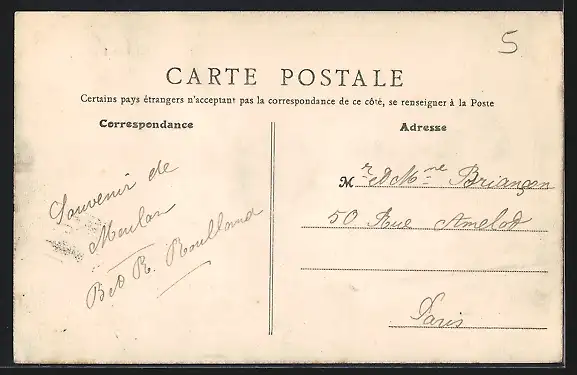 5
CARTE POSTALE
Certains pays étrangers n'acceptent pas la correspondance de ce côté, se renseigner à la Poste
Correspondance
Adresse
Souvenir de
Meulan
R. Roulland
Mr et Mme Briançon
50 Rue Amelot
Paris